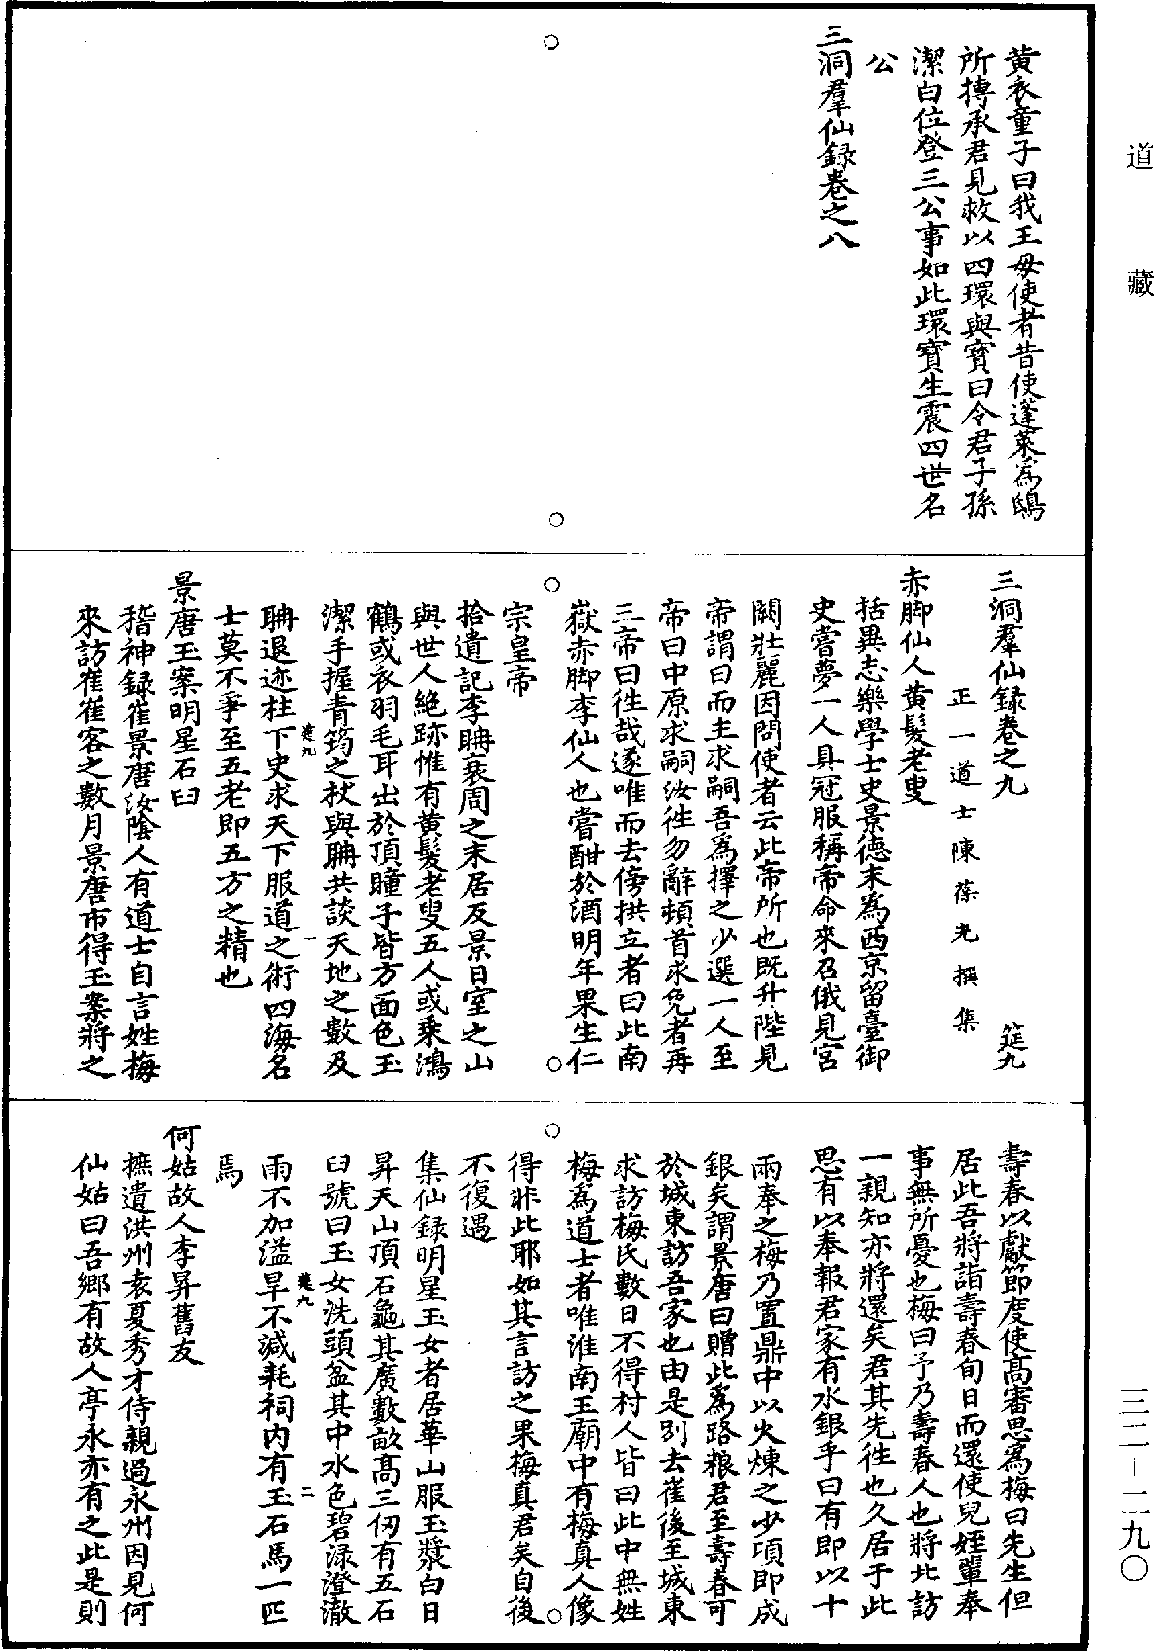 道藏
黃衣童子曰我王母使者昔使蓬萊為鴟
所搏承君見救以四環與寳曰令君子孫
潔白位登三公事如此環寳生震四世名
公
三洞羣仙録卷之八
三洞羣仙録卷之九 筵九
正一道士陳葆光撰集
赤脚仙人黃髮老叟
括異志樂學士史景德末為西京留臺御
史嘗夢一人具冠服稱帝命來召俄見宮
闕壯麗因問使者云此帝所也既升陛見
帝謂曰而主求嗣吾為擇之少選一人至
帝曰中原求嗣汝往勿辭頓首求免者再
三帝曰往哉遂唯而去傍拱立者曰此南
嶽赤脚李仙人也嘗酣於酒明年果生仁
宗皇帝
拾遺記李聃衰周之末居反景日室之山
與世人絶跡惟有黃髮老叟五人或乘鴻
鶴或衣羽毛耳出於頂瞳子皆方面色玉
潔手握青筠之杖與聃共談天地之數及
筵九 一
聃退迹柱下史求天下服道之術四海名
士莫不爭至五老即五方之精也
景唐玉案明星石臼
稽神録崔景唐汝隂人有道士自言姓梅
來訪崔崔客之數月景唐市得玉案將之
壽春以獻節度使髙審思為梅曰先生但
居此吾將詣壽春旬日而還使兒姪輩奉
事無所憂也梅曰予乃壽春人也將此訪
一親知亦將還矣君其先往也久居于此
思有以奉報君家有水銀乎曰有即以十
兩奉之梅乃置鼎中以火煉之少頃即成
銀矣謂景唐曰贈此為路粮君至壽春可
於城東訪吾家也由是别去崔後至城東
求訪梅氏數日不得村人皆曰此中無姓
梅為道士者唯淮南王廟中有梅真人像
得非此耶如其言訪之果梅真君矣自後
不復遇
集仙録明星玉女者居華山服玉漿白日
昇天山頂石龜其廣數畝髙三仭有五石
臼號曰玉女洗頭盆其中水色碧渌澄澈
筵九 二
雨不加溢旱不減耗祠内有玉石馬一匹
焉
何姑故人李昇舊友
摭遺洪州袁夏秀才侍親過永州因見何
仙姑曰吾鄉有故人亭永亦有之此是則
三二－二九〇